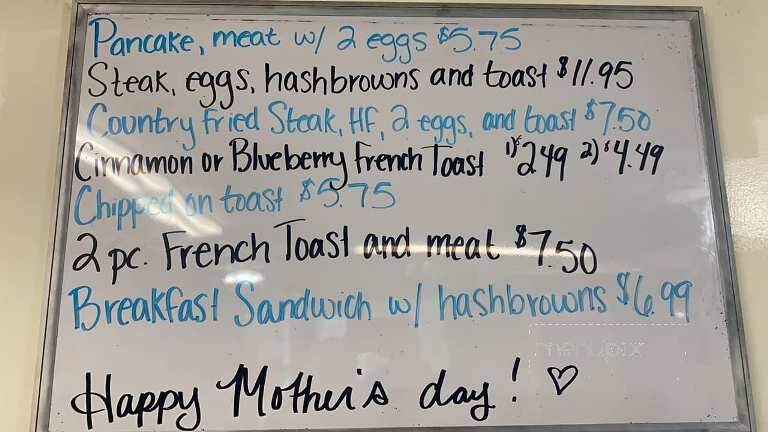 Pancake, meat w/ 2 eggs $5.75
Steak, eggs, hashbrowns and toast $11.95
Country Fried Steak, HF, 2 eggs, and toast $7.50
Cinnamon or Blueberry French Toast 1) $2.49 2) $4.49
Chipped on toast $5.75
2 pc. French Toast and meat $7.50
Breakfast Sandwich w/ hashbrowns $6.99
menupix
Happy Mother's day! ♡